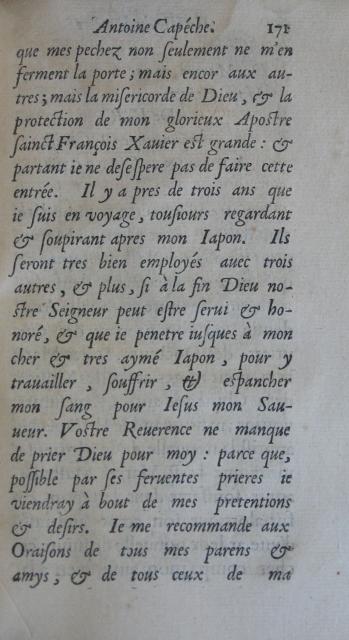 Antoine Capéche. 171
que mes pechez non ſeulement ne m'en
ferment la porte; mais encor aux au-
tres; mais la miſericorde de Dieu, & la
protection de mon glorieux Apoſtre
ſainct François Xauier eſt grande: &
partant ie ne deſeſpere pas de faire cette
entrée. Il y a pres de trois ans que
ie ſuis en voyage, touſiours regardant
& ſoupirant apres mon Iapon. Ils
ſeront tres bien employés auec trois
autres, & plus, ſi à la fin Dieu no-
ſtre Seigneur peut eſtre ſerui & ho-
noré, & que ie penetre iuſques à mon
cher & tres aymé Iapon, pour y
trauailler, ſouffrir, & eſpancher
mon ſang pour Ieſus mon Sau-
ueur. Voſtre Reuerence ne manque
de prier Dieu pour moy: parce que,
poſſible par ſes feruentes prieres ie
viendray à bout de mes pretentions
& deſirs. Ie me recommande aux
Oraiſons de tous mes parens &
amys, & de tous ceux de ma